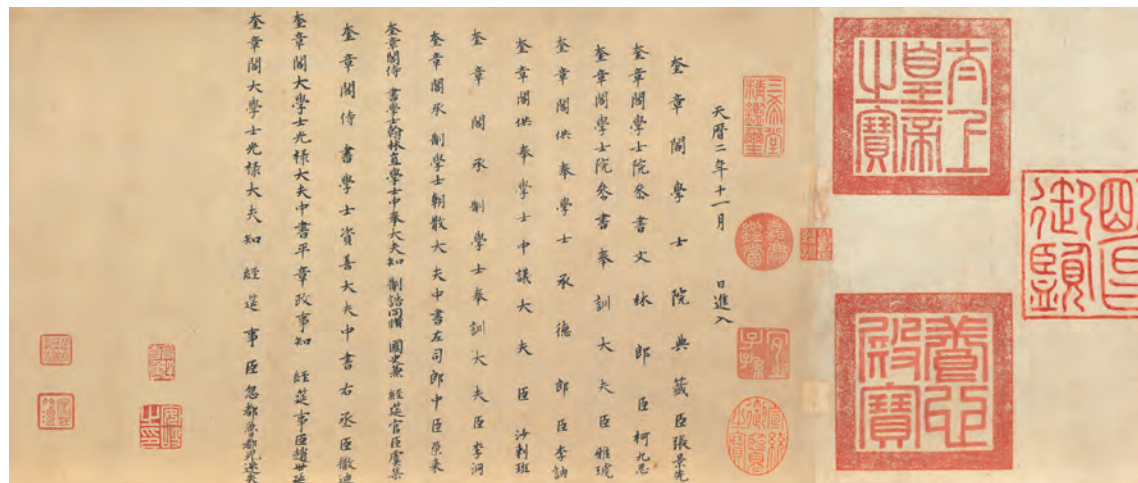 太上皇帝之寶
養心殿寶
三希堂精鑑璽
嘉慶鑑賞
宜子孫
宣統御覽之寶
天曆二年十一月 日進入
奎章閣學士院典籤臣張景先
奎章閣學士院參書文林郎臣柯九思
奎章閣學士院參書奉訓大夫臣雅琥
奎章閣供奉學士承德郎臣李訥
奎章閣供奉學士中議大夫臣沙剌班
奎章閣承制學士奉訓大夫臣李泂
奎章閣承制學士朝散大夫中書左司郎中臣朶來
奎章閣侍書學士翰林直學士中奉大夫知 制誥同脩 國史兼 經筵官臣虞集
奎章閣侍書學士資善大夫中書右丞臣撒迪
奎章閣大學士光祿大夫中書平章政事知 經筵事臣趙世延
奎章閣大學士光祿大夫知 經筵事臣忽都魯都兒迷失